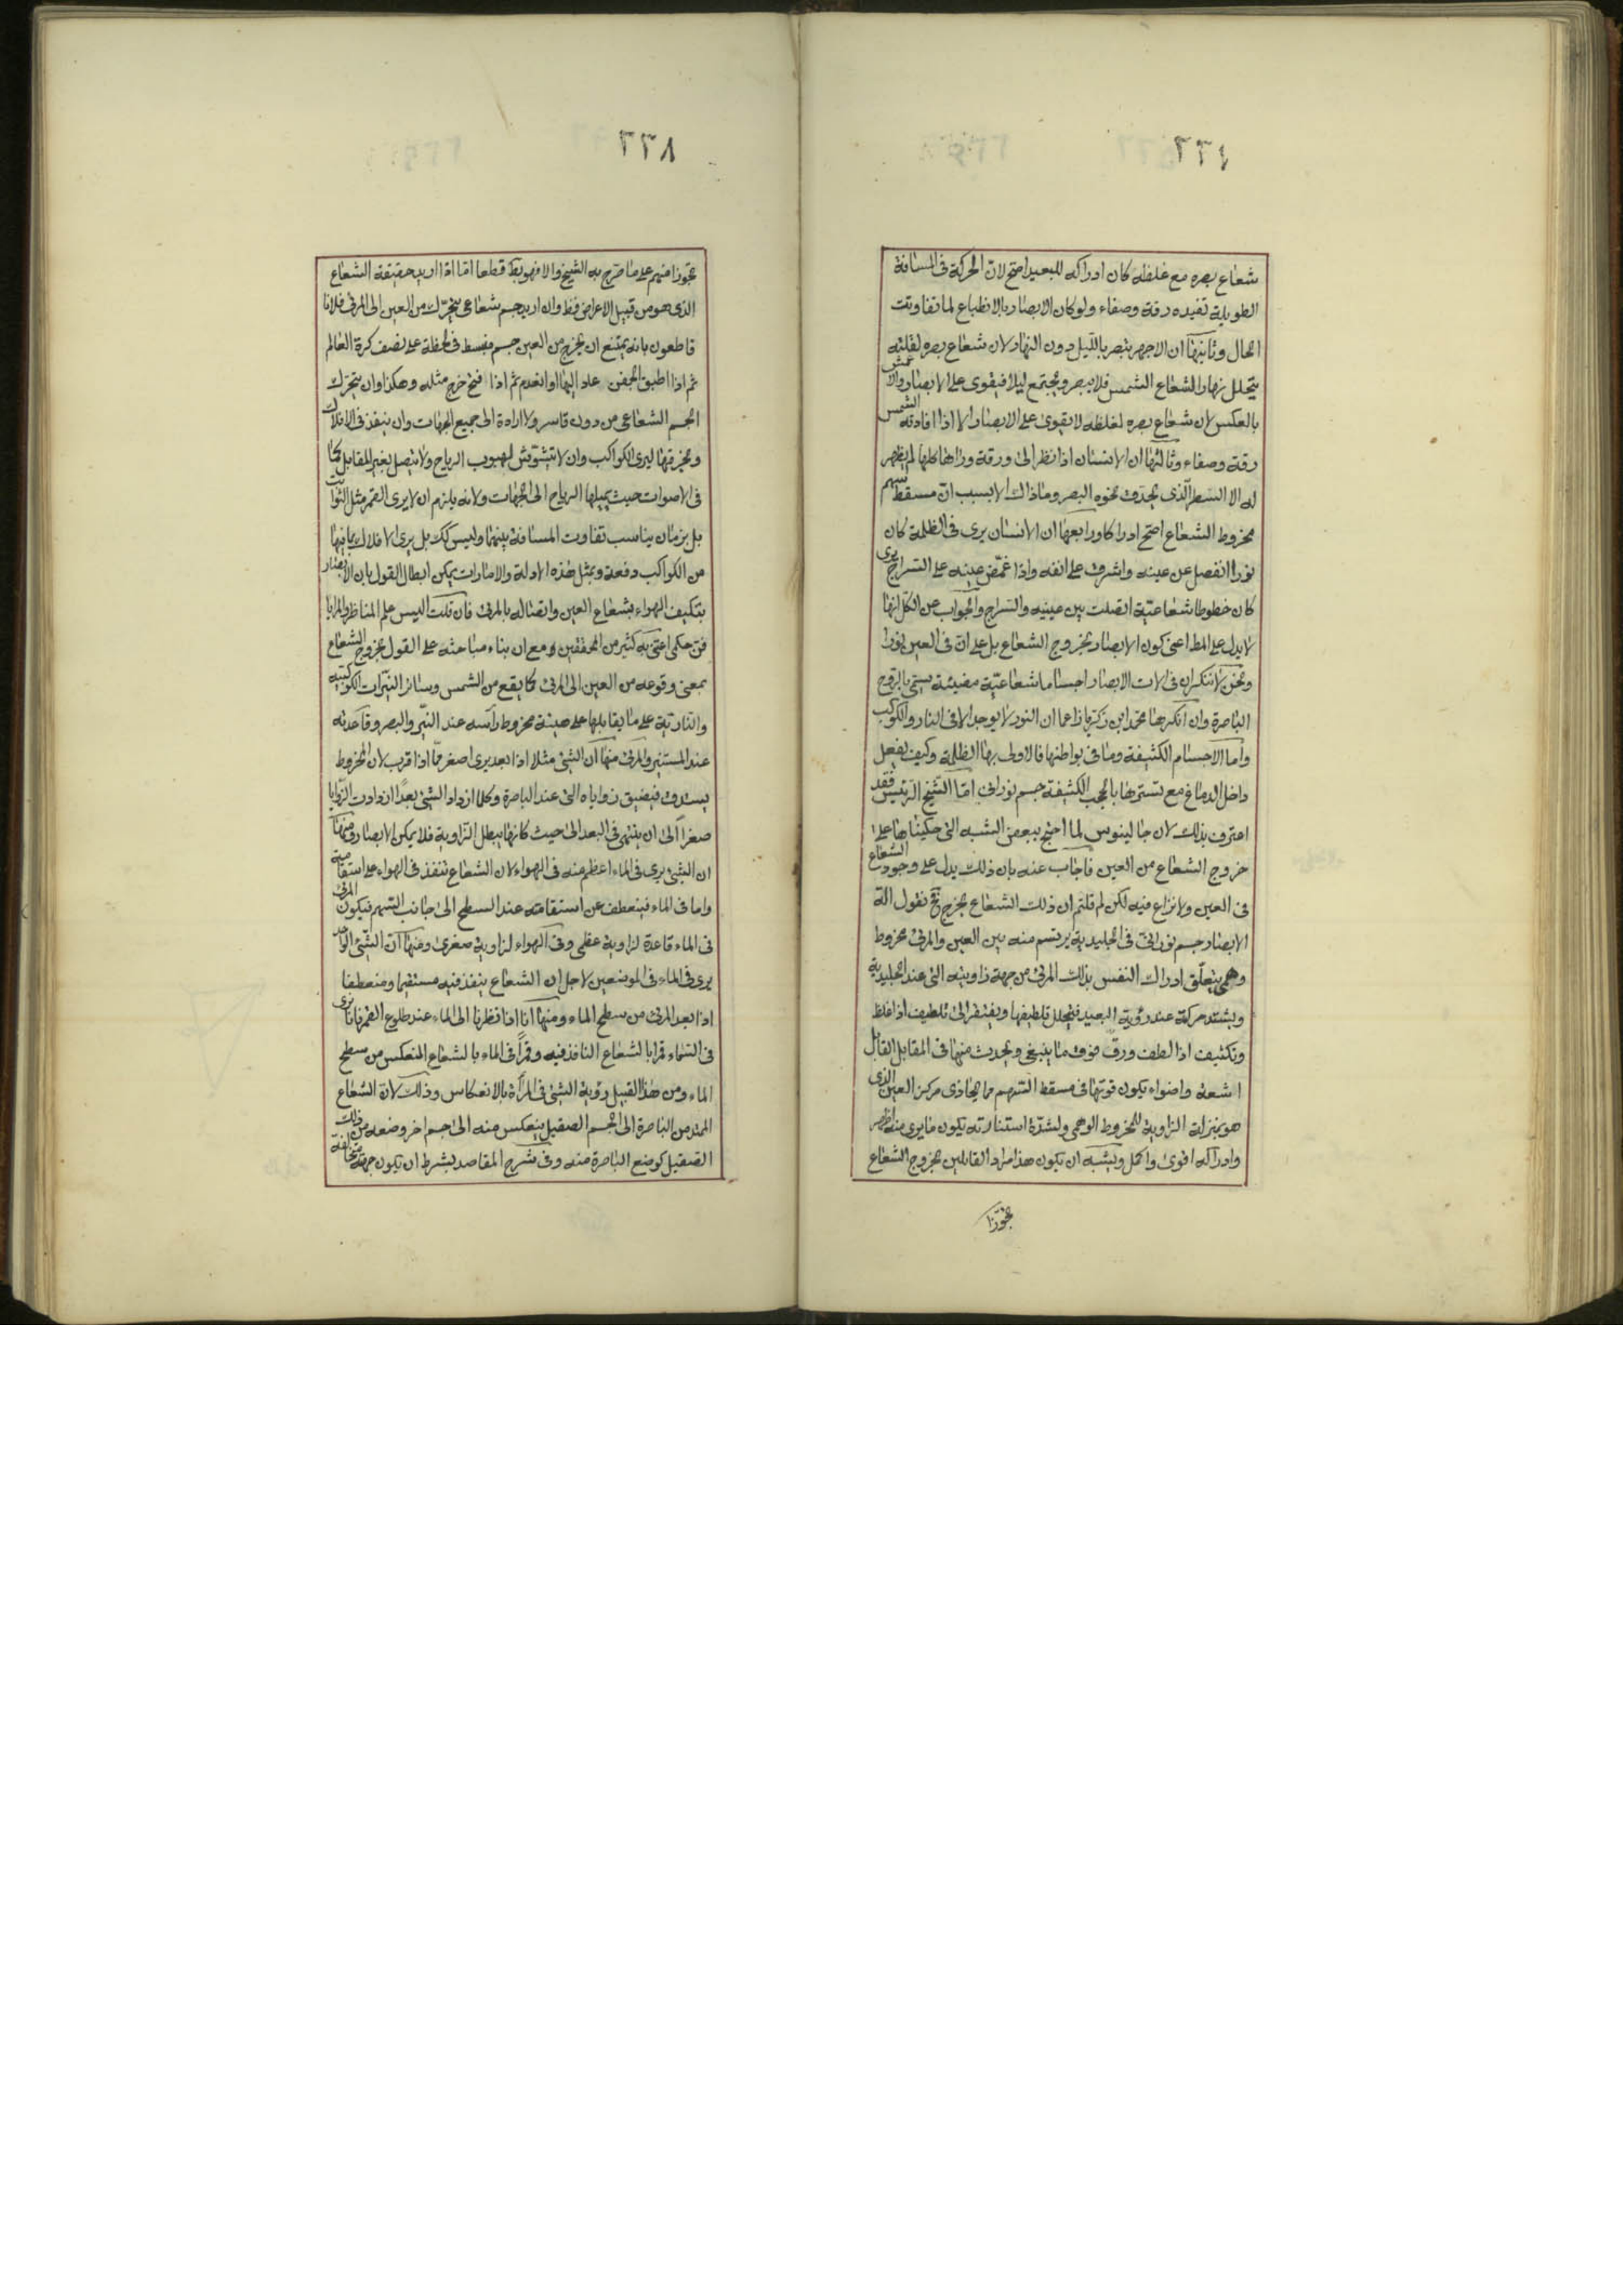 ٢٢٤
شعاع بصره مع غلظه كان ادراكه للبعيد اصح لان الحركة فى المسافة
الطويلة تفيده رقة وصفاء ولو كان الابصار بالانطباع لما تفاوتت
الحال وثانيها ان الاجهر يبصر بالليل دون النهار لان شعاع بصره لقلته
يتحلل نهارا لشعاع الشمس فلا يبصر ويجتمع ليلا فيقوى على الابصار والاعمش
بالعكس لان شعاع بصره لغلظه لا يقوى على الابصار الا اذا افادته الشمس
رقة وصفاء وثالثها ان الانسان اذا نظر الى ورقة وراها كلها لم يظهر
له الا السطر الذى يحدق نحوه البصر وما ذاك الا بسبب ان مسقط سهم
مخروط الشعاع اصح ادراكا ورابعها ان الانسان يرى فى الظلمة كان
نورا انفصل عن عينه واشرق على انفه واذا غمض عينه على السراج يرى
كان خطوطا شعاعية اتصلت بين عينيه والسراج والجواب عن الكل انها
لا يدل على المط اعنى كون الابصار بخروج الشعاع بل على ان فى العين نورا
ونحن لا ننكر ان فى الات الابصار اجساما شعاعية مضيئة يسمى بالروح
الباصرة وان انكرها محمد ابن زكريا زاعما ان النور لا يوجد الا فى النار والكواكب
واما الاجسام الكثيفة وما فى بواطنها فالاولى بها الظلمة وكيف يفعل
داخل الدماغ مع تسترها بالحجب الكثيفة جسم نورانى اما الشيخ الرئيس فقد
اعترف بذلك لان جالينوس لما احتج ببعض الشبه التى حكيناها على
خروج الشعاع من العين فاجاب عنه بان ذلك يدل على وجود الشعاع
فى العين ولا نزاع فيه لكن لم قلتم ان ذلك الشعاع يخرج نحن نقول الة
الابصار جسم نورانى فى الجليدية يرتسم منه بين العين والمرئى مخروط
وهمى يتعلق ادراك النفس بذلك المرئى من جهة زاويته التى عند الجليدية
ويشتد حركة عند رؤية البعيد فيتحلل لطيفها ويفتقر الى تلطيف اذا غلظ
وتكثيف اذا لطف ورق فوق ما ينبغى ويحدث منها فى المقابل القابل
اشعة واضواء يكون قوتها فى مسقط السهم مما يحاذى مركز العين الذى
هو بمنزلة الزاوية للمخروط الوهمى ولشدة استنارته يكون ما يرى منه اظهر
وادراكه اقوى واكمل ويشبه ان يكون هذا مراد القائلين بخروج الشعاع
تجوزا
٢٢٨
تجوزا منهم على ما صرح به الشيخ والا فهو بط قطعا اما اذا اريد حقيقة الشعاع
الذى هو من قبيل الاعراض فظ وان اريد جسم شعاعى يتحرك من العين الى المرئى فلانا
قاطعون بانه يمتنع ان يخرج من العين جسم منبسط فى لحظة على نصف كرة العالم
ثم اذا اطبق الجفن عاد اليها او انعدم ثم اذا فتح خرج مثله وهكذا وان يتحرك
الجسم الشعاعى من دون قاسر ولا ارادة الى جميع الجهات وان ينفذ فى الافلاك
ويخرقها ليرى الكواكب وان لا يتشوش لهبوب الرياح ولا يتصل بغير المقابل كما
فى الاصوات حيث يميلها الرياح الى الجهات ولانه يلزم ان لا يرى القمر مثل الثوابت
بل بزمان يناسب تفاوت المسافة بينهما وليس كك بل يرى الافلاك بما فيها
من الكواكب دفعة وبمثل هذه الادلة والامارات يمكن ابطال القول بان الابصار
بتكيف الهواء بشعاع العين واتصاله بالمرئى فان قلت اليس علم المناظر والمرايا
فن حكمى اعتنى به كثير من المحققين ومع ان بناء مباحثه على القول بخروج الشعاع
بمعنى وقوعه من العين الى المرئى كما يقع من الشمس وسائر النيرات الكوكبية
والنارية على ما يقابلها على هيئة مخروط رأسه عند النير والبصر وقاعدته
عند المستنير والمرئى منها ان الشئ مثلا اذا بعد يرى اصغر مما اذا قرب لان المخروط
يستدق فيضيق زواياه التى عند الباصرة وكلما ازداد الشئ بعدا ازدادت الزوايا
صغرا الى ان ينتهى فى البعد الى حيث كانها يبطل الزاوية فلا يمكن الابصار ومنها
ان الشئ يرى فى الماء اعظم منه فى الهواء لان الشعاع تنفذ فى الهواء على استقامة
واما فى الماء فينعطف عن استقامته عند السطح الى جانب السهم فيكون المرئى
فى الماء قاعدة لزاوية عظمى وفى الهواء لزاوية صغرى ومنها ان الشئ الواحد
يرى فى الماء فى الموضعين لاجل ان الشعاع ينفذ فيه مستقيما ومنعطفا
اذا بعد المرئى من سطح الماء ومنها انا اذا نظرنا الى الماء عند طلوع القمر فانا نرى
فى السماء قمرا بالشعاع النافذ فيه وقمرا فى الماء بالشعاع المنعكس من سطح
الماء ومن هذا القبيل رؤية الشئ فى المرآة بالانعكاس وذلك لان الشعاع
الممتد من الباصرة الى الجسم الصقيل ينعكس منه الى جسم اخر وضعه من ذلك
الصقيل كوضع الباصرة منه وفى شرح المقاصد بشرط ان يكون جهته مخالفة